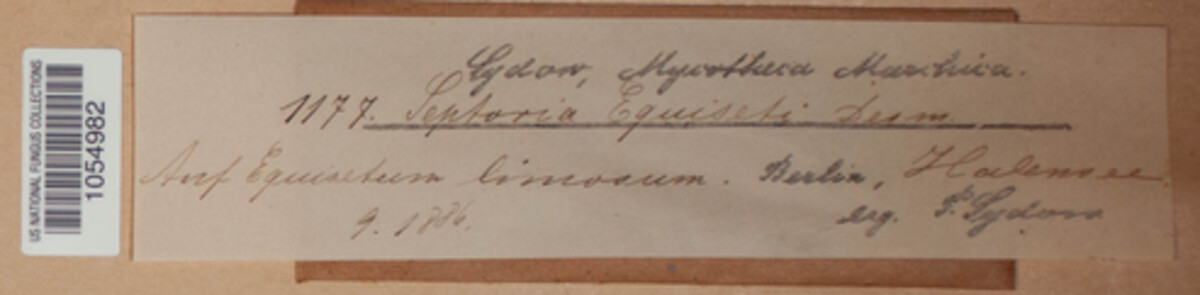 US NATIONAL FUNGUS COLLECTIONS
1054982
Sydow, Mycotheca Marchica.
1177. Septoria Equiseti Desm.
Auf Equisetum limosum. Berlin, Halensee
9. 1886. leg. P. Sydow